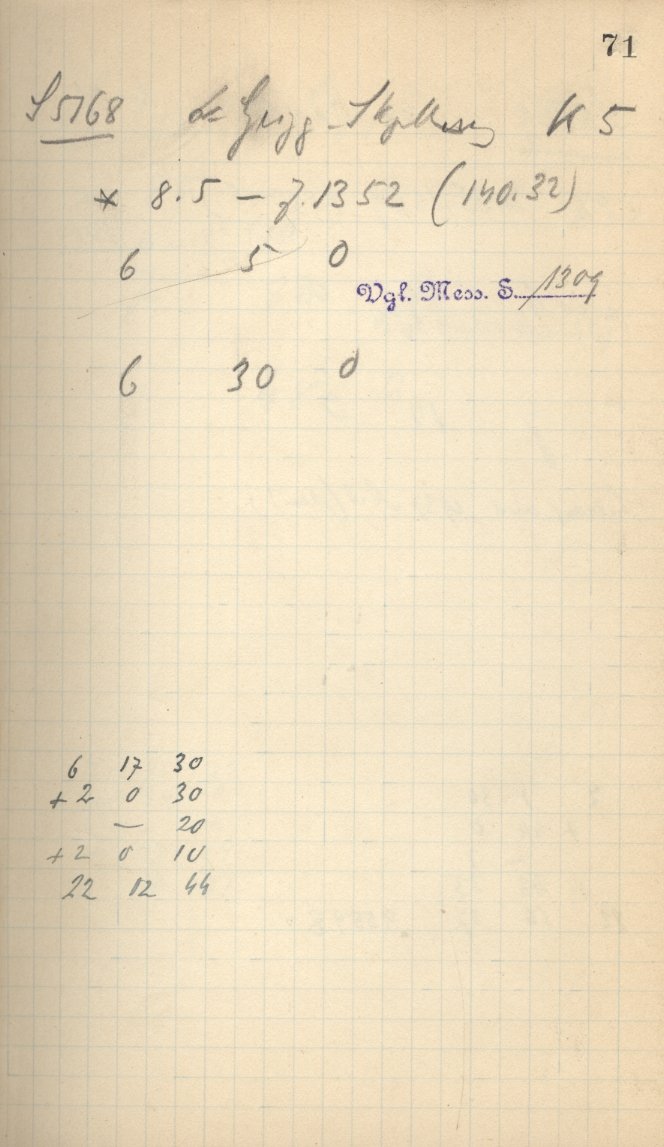 71
S 5768 K 5
* 8.5 – 7.1352 (140.32)
6 5 0
Vgl. Mess. S. 1309
6 30 0
6 17 30
+2 0 30
— 20
+2 0 10
22 12 44